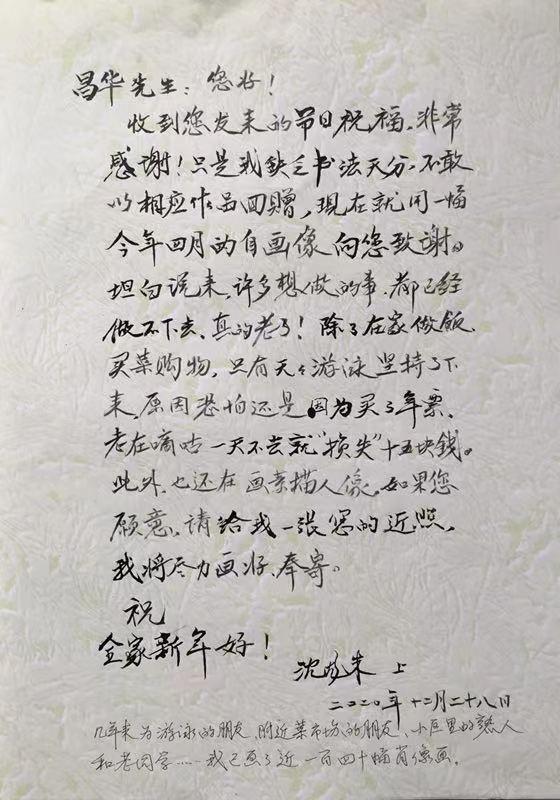 昌华先生：您好！
收到您发来的节日祝福，非常
感谢！只是我缺乏书法天分，不敢
以相应作品回赠，现在就用一幅
今年四月的自画像向您致谢。
坦白说来，许多想做的事，都已经
做不下去，真的老了！除了在家做饭，
买菜购物，只有天天游泳坚持了下
来，原因恐怕还是因为买了年票，
老在嘀咕一天不去就“损失”十五块钱。
此外，也还在画素描人像，如果您
愿意，请给我一张您的近照，
我将尽力画好、奉寄。
祝
全家新年好！
沈 朱 上
二〇二〇年 十二月二十八日
几年来为游泳的朋友，附近菜市场的朋友，小区里的熟人
和老同学……我已画了近一百四十幅肖像画。